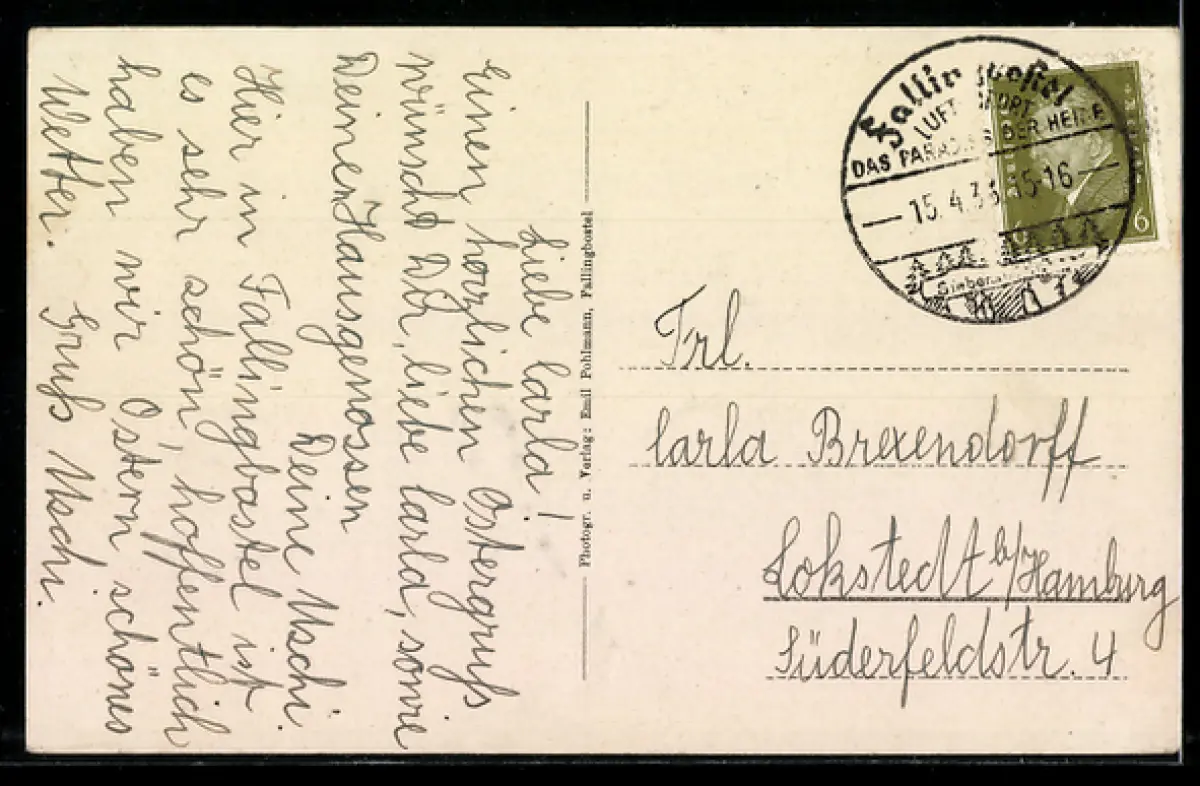 Liebe Carla!
Einen herzlichen Ostergruß
wünscht Dir, liebe Carla, sowie
Deinen Hausgenossen
Deine Uschi.
Hier in Fallingbostel ist
es sehr schön, hoffentlich
haben wir Ostern schönes
Wetter. Gruß Uschi.
Photogr. u. Verlag: Emil Pohlmann, Fallingbostel
Fallingbostel
LUFTKURORT
DAS PARADIES DER HEIDE
15.4.33. 15-16
6
Frl.
Carla Brexendorff
Lokstedt b/Hamburg
Süderfeldstr. 4